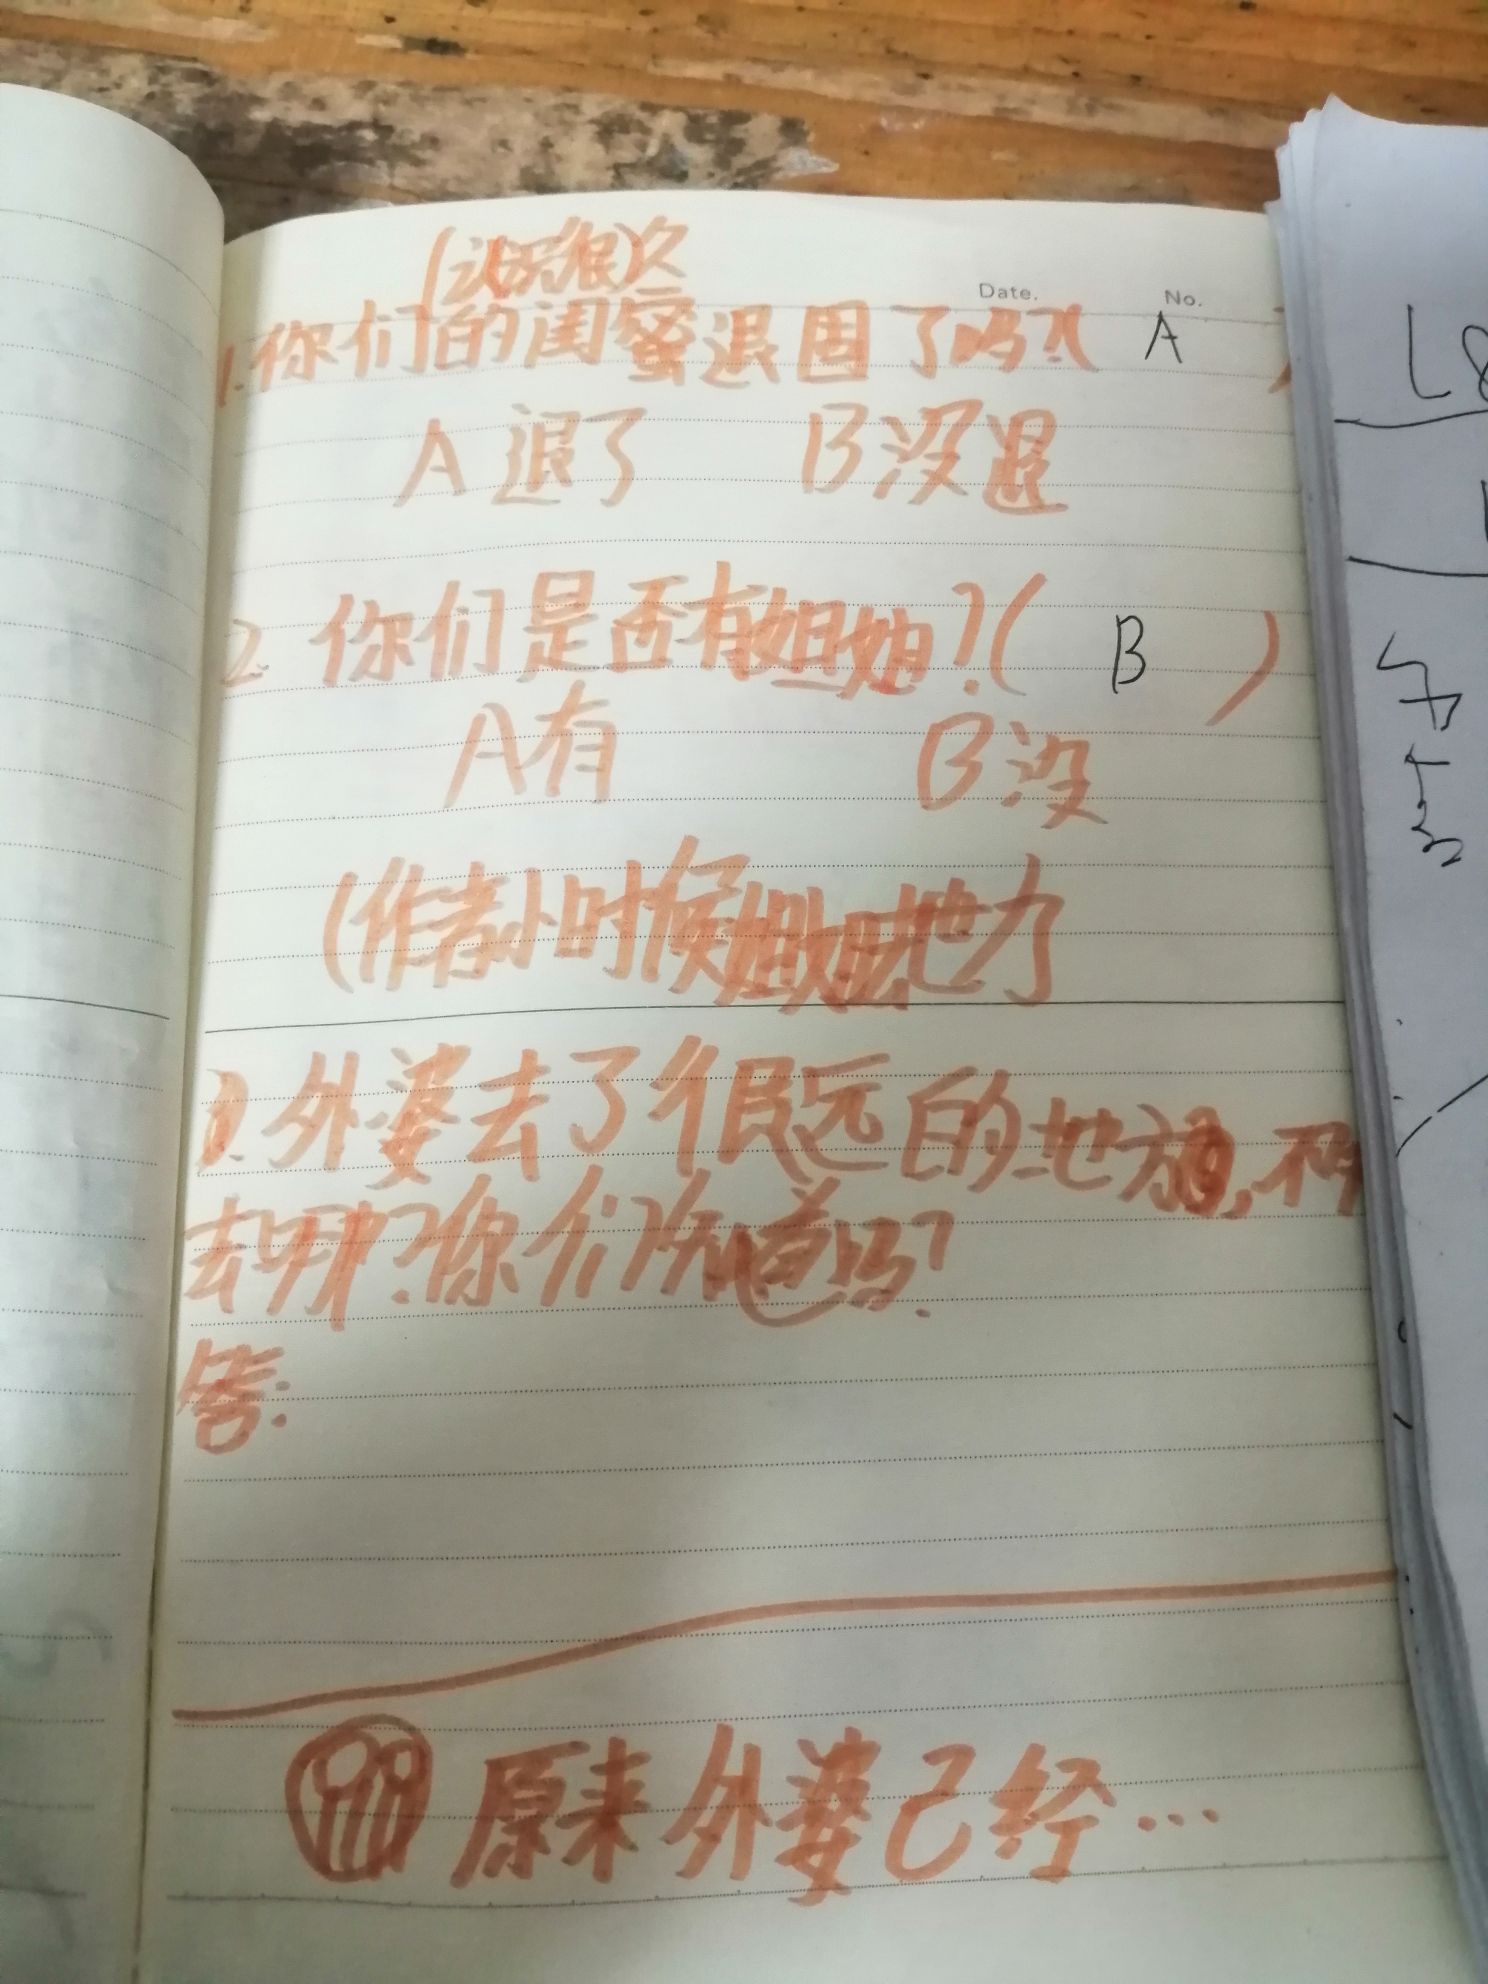 (认识很)久
Date. No.
1.你们的闺蜜退圈了吗?( A )
A 退了 B 没退
2. 你们是否有姐姐?( B )
A 有 B 没
(作者小时候姐姐
3.外婆去了很远的地方,不
去哪?你们知道吗?
答:
原来外婆己经…